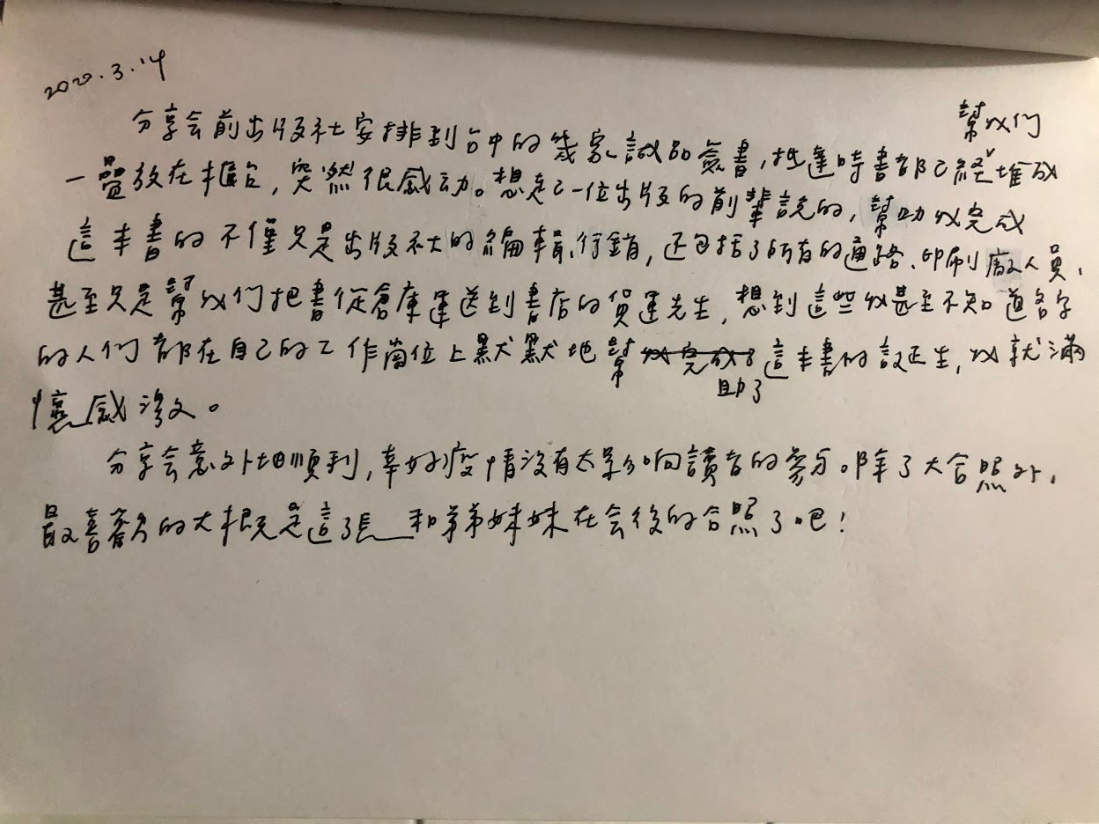 2020.3.14
分享会前出版社安排到台中的幾家誠品簽書,抵達時書都已經幫我們堆成
一疊放在櫃台,突然很感动。想起一位出版的前輩說的,幫助我完成
這本書的不僅只是出版社的編輯、行銷,还包括了所有的通路、印刷廠人員、
甚至只是幫我們把書從倉庫運送到書店的貨運先生,想到這些我甚至不知道名字
的人們都在自己的工作崗位上默默地幫助了這本書的誕生,我就滿
懷感激。
分享会意外地順利,幸好疫情沒有太影响讀者的參与。除了大合照外,
最喜歡的大概是這張和弟弟妹妹在会後的合照了吧!